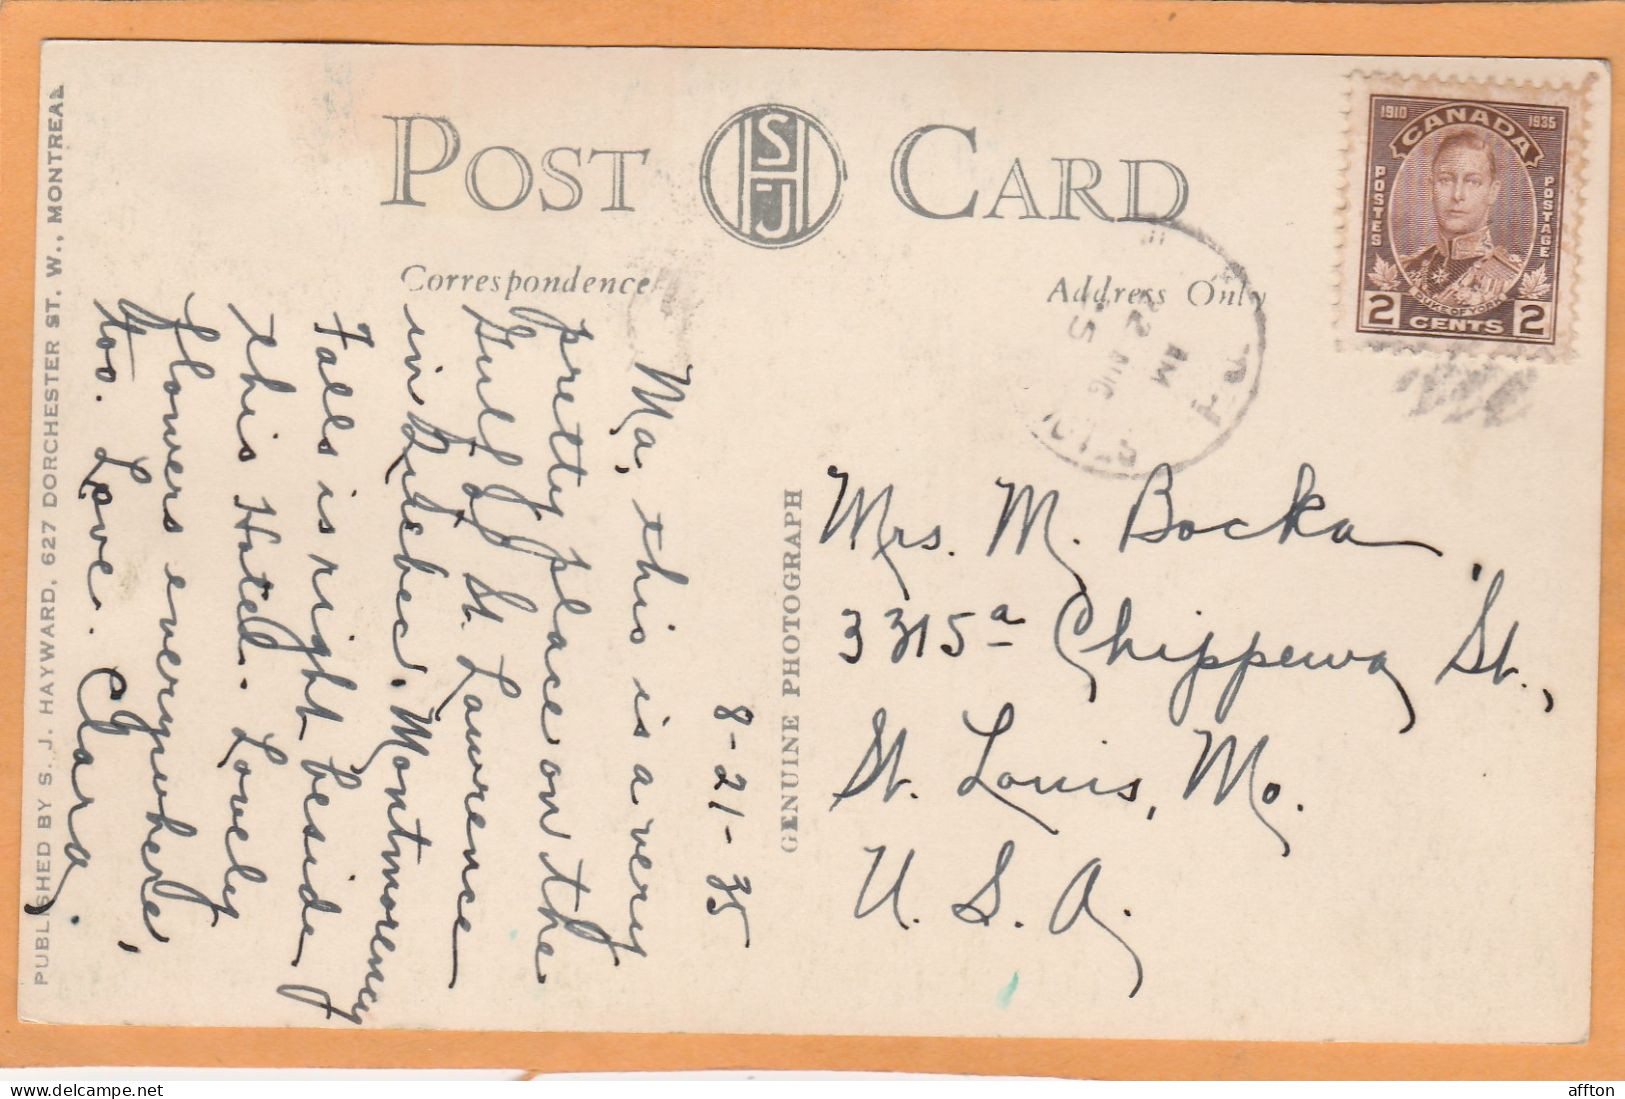 POST CARD
SJ
Correspondence
Address Only
1910 CANADA 1935
POSTES
POSTAGE
DUKE OF YORK
2 CENTS 2
22 AUG
AM
35
8-21-35
Ma, this is a very
pretty place on the
Gulf of St. Lawrence
in Quebec. Montmorency
Falls is right beside
this Hotel. Lovely
flowers everywhere,
too. Love. Clara.
GENUINE PHOTOGRAPH
Mrs. M. Bocka
3315a Chippewa St.,
St. Louis, Mo.
U. S. A.
PUBLISHED BY S. J. HAYWARD, 627 DORCHESTER ST. W., MONTREAL
affton